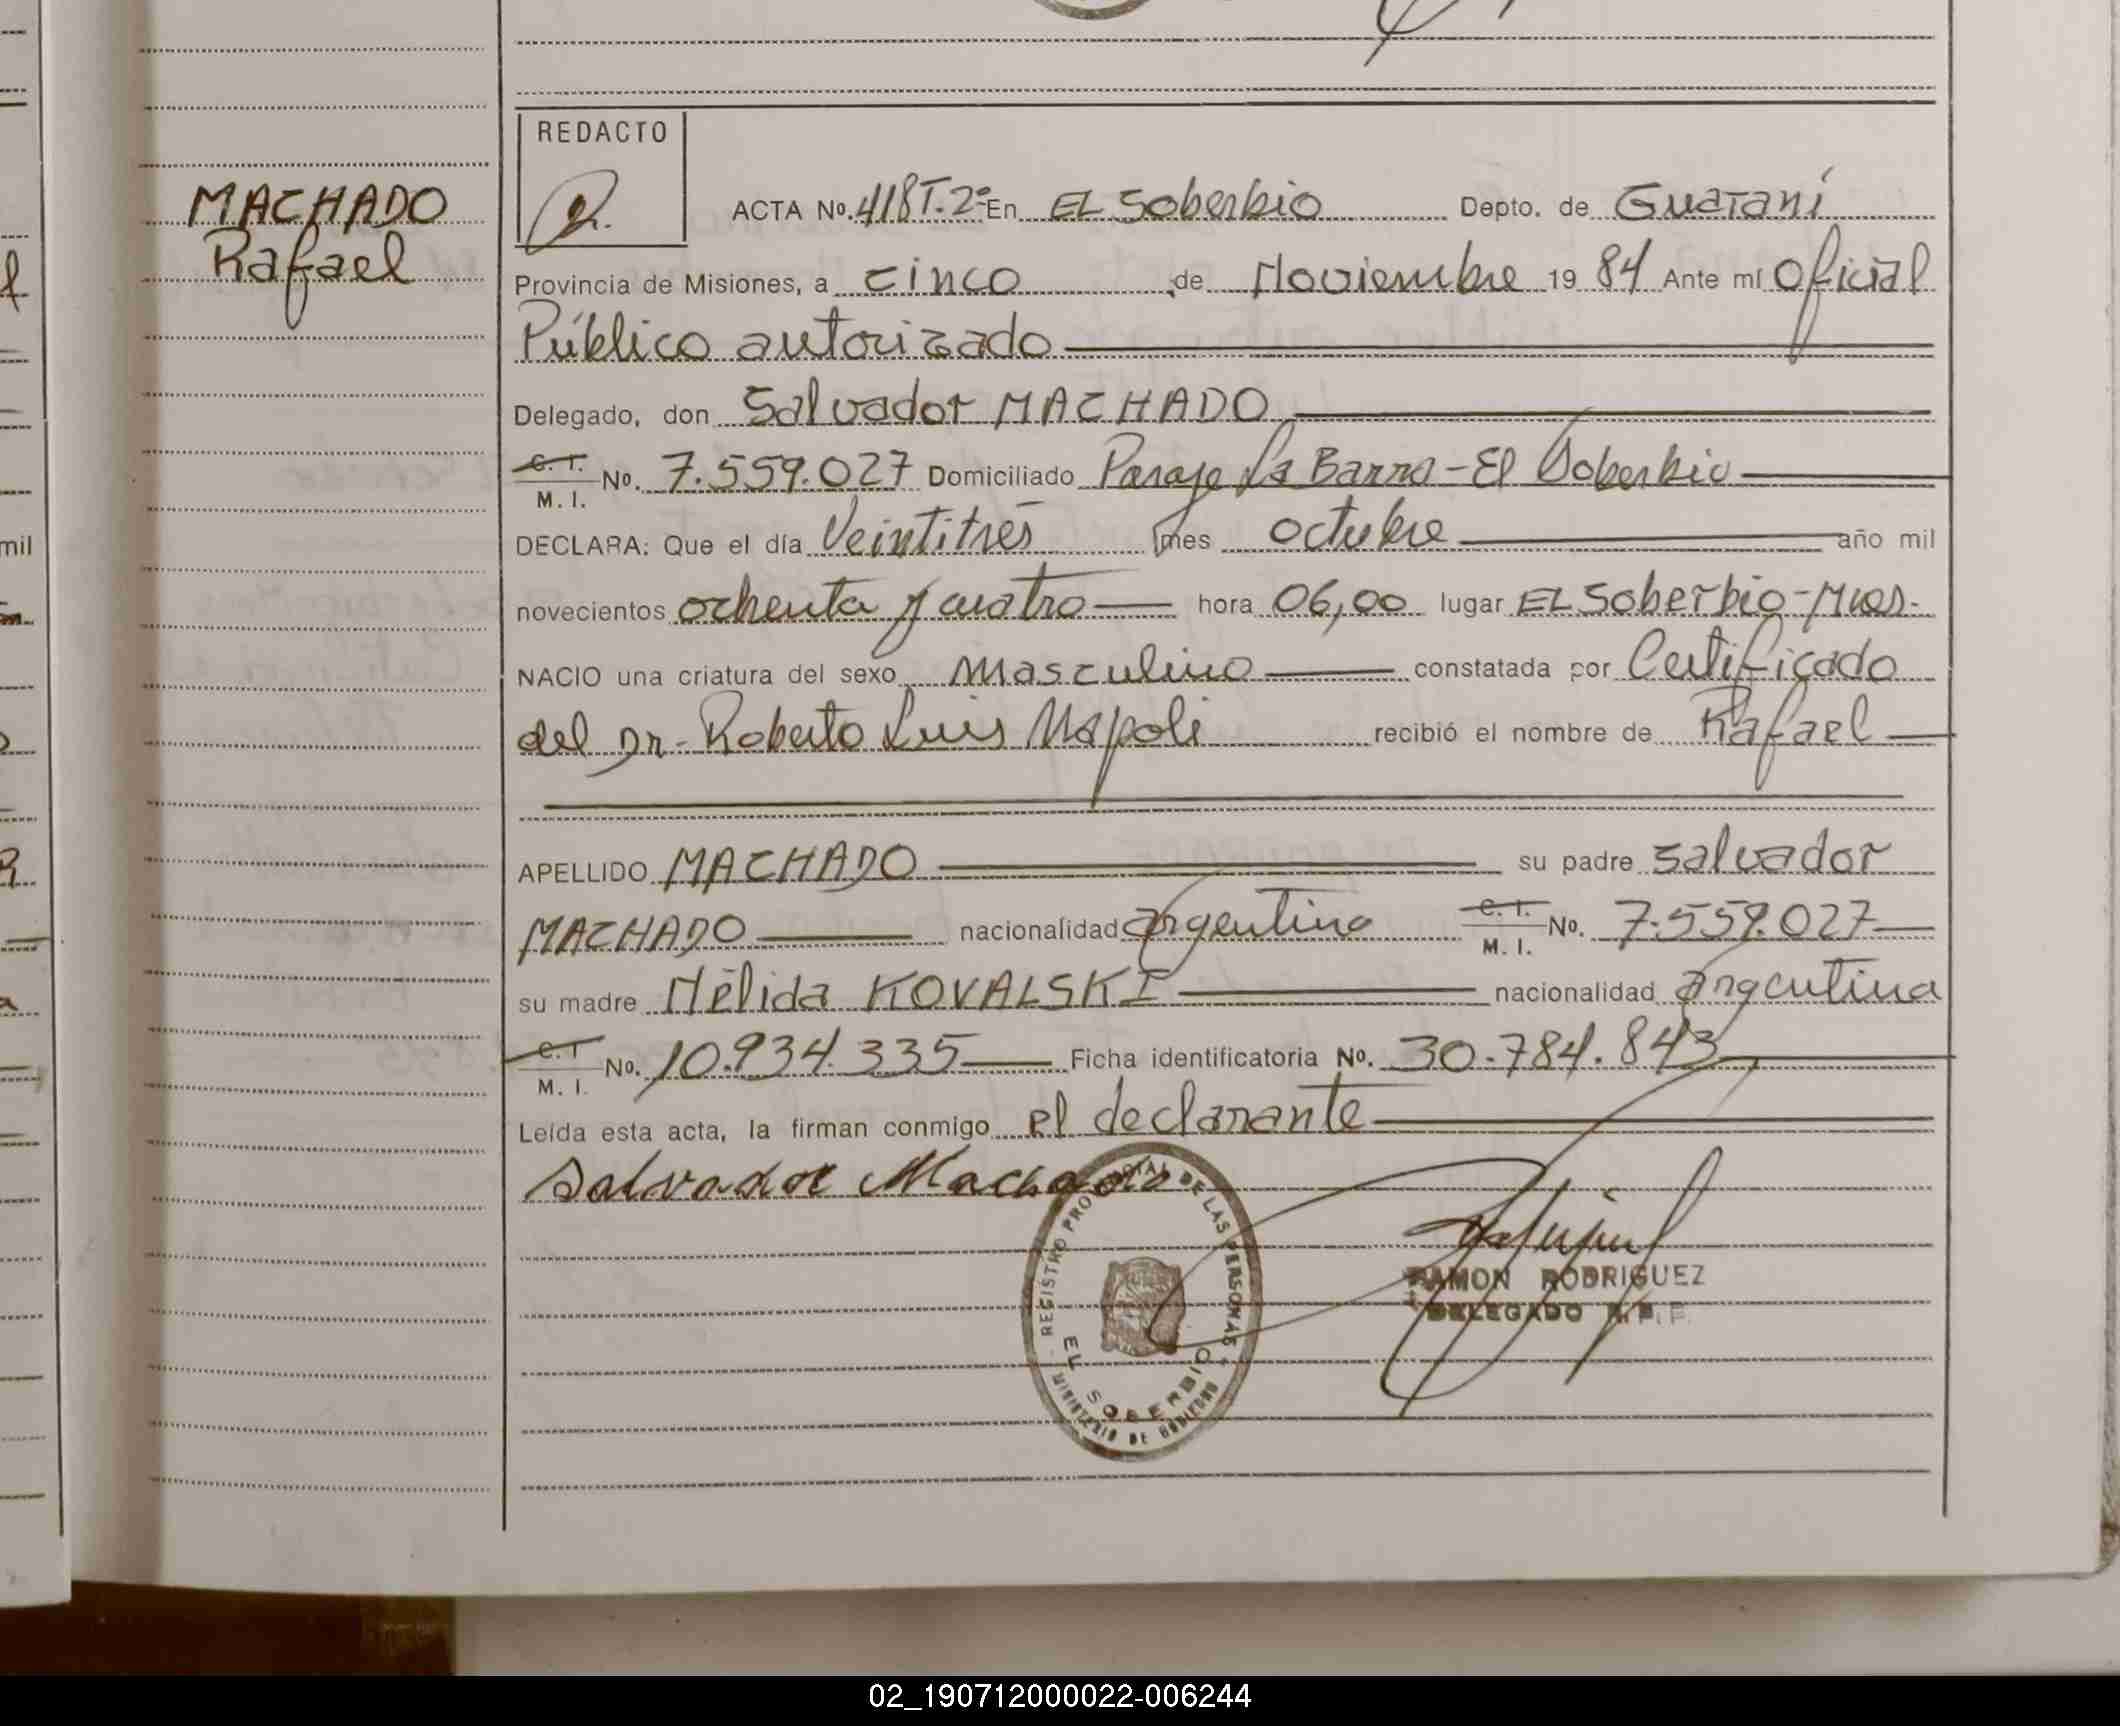 REDACTO
MACHADO
Rafael
ACTA No. 418 T. 2º En EL Soberbio Depto. de Guaraní
Provincia de Misiones, a cinco de Noviembre 19 84 Ante mí Oficial
Público autorizado
Delegado, don Salvador MACHADO
C. I. M. I. No. 7.559.027 Domiciliado Paraje La Barra - El Soberbio
DECLARA: Que el día Veintitrés mes octubre año mil
novecientos ochenta y cuatro hora 06,00 lugar EL Soberbio - Mnes.
NACIO una criatura del sexo masculino constatada por Certificado
del Dr. Roberto Luis Nápoli recibió el nombre de Rafael
APELLIDO MACHADO su padre Salvador
MACHADO nacionalidad argentina C. I. M. I. No. 7.559.027
su madre Nélida KOVALSKI nacionalidad argentina
C. I M. I. No. 10.934.335 Ficha identificatoria No. 30.784.843
Leída esta acta, la firman conmigo el declarante
Salvador Machado
REGISTRO PROVINCIAL DE LAS PERSONAS
EL SOBERBIO
MINISTERIO DE GOBIERNO
RAMON RODRIGUEZ
DELEGADO R. P. P.
mil
02_190712000022-006244